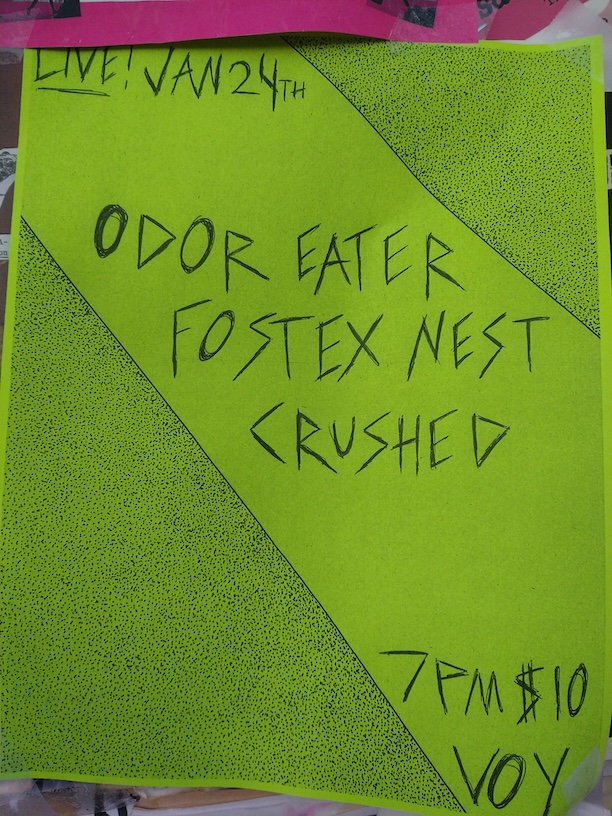 LIVE! JAN 24TH
ODOR EATER
FOSTEX NEST
CRUSHED
7PM $10
VOY